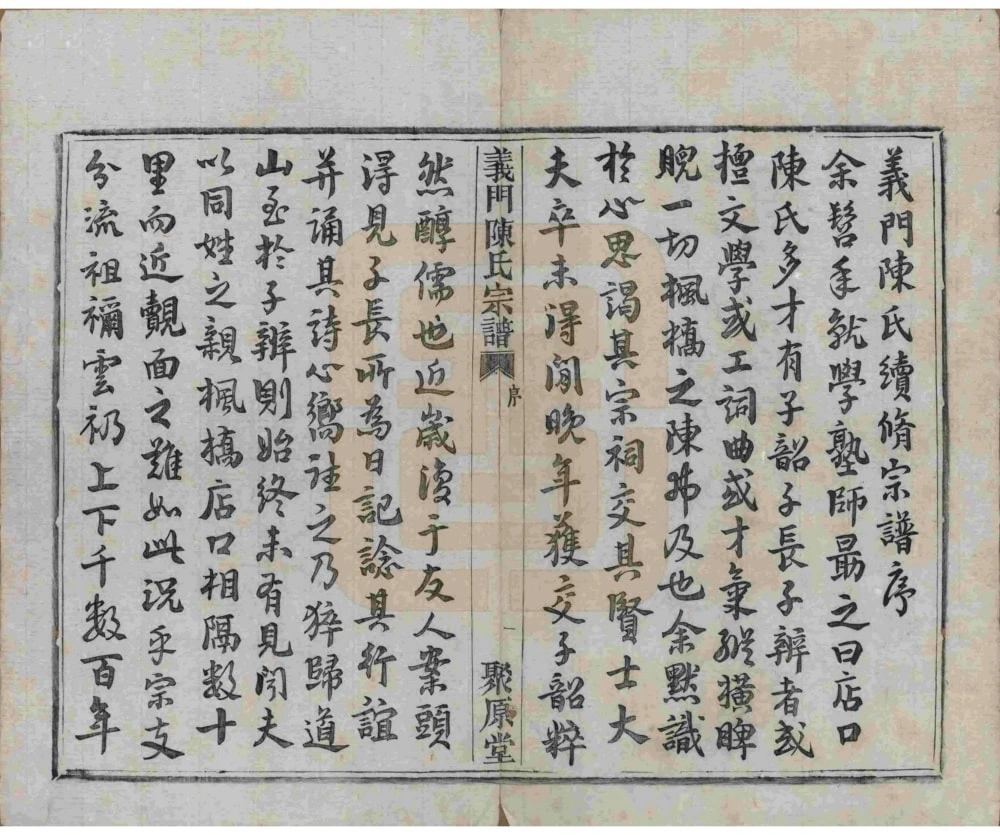 義門陳氏續脩宗譜序
余髫年就學塾師最之曰店口
陳氏多才有子韶子長子辨者或
擅文學或工詞曲或才氣縱橫睥
睨一切楓橋之陳弗及也余默識
於心思謁其宗祠交其賢士大
夫卒未得閒晚年獲交子韶粹
義門陳氏宗譜 序 一 聚原堂
然醇儒也近歲復于友人案頭
得見子長所為日記諗其行誼
并誦其詩心嚮往之乃猝歸道
山至於子辨則始終未有見聞夫
以同姓之親楓橋店口相隔數十
里而近覿面之難如此況乎宗支
分流祖禰雲礽上下千數百年